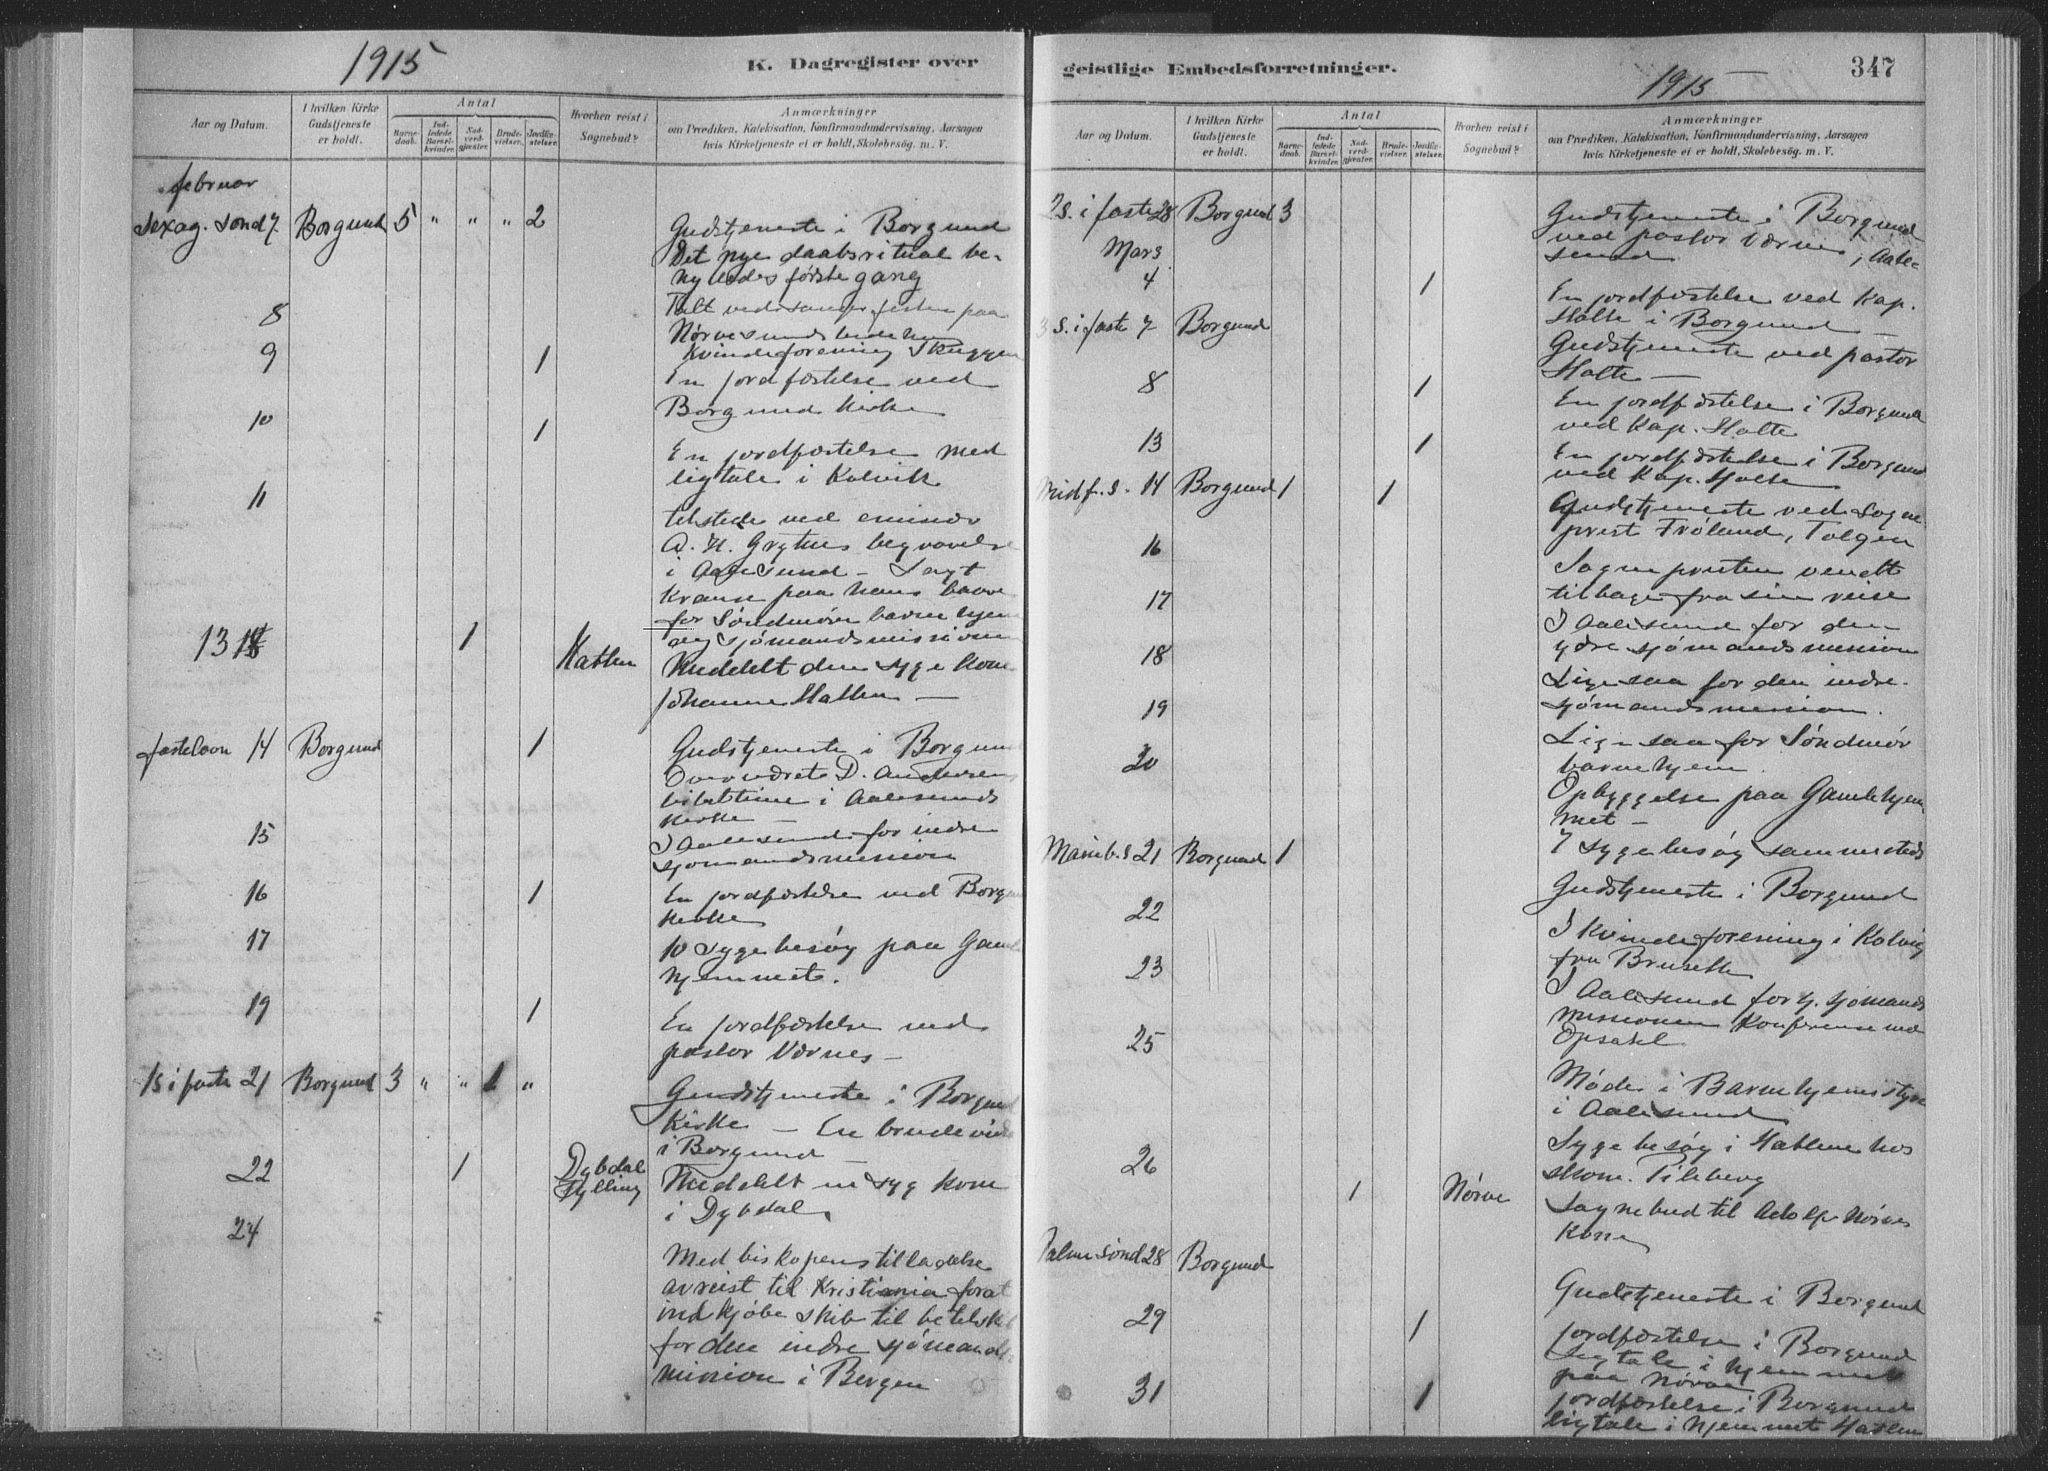 1915
K. Dagregister over
Aar og Datum.
I hvilken Kirke Gudstjeneste er holdt.
Antal
Barne-daab.
Ind-ledede Barsel-kvinder.
Nad-verd-gjæster.
Brude-vielser.
Jordfæ-stelser.
Hvorhen reist i Sognebud?
Anmærkninger
om Prædiken, Katekisation, Konfirmandundervisning, Aarsagen
hvis Kirketjeneste ei er holdt, Skolebesög. m. V.
februar
Sexag. Sønd 7. Borgund 5 " " " 2 Gudstjeneste i Borgund
Det nye daabsritual be-
nyttedes første gang
8 Talt ved paa
Nørvesunds bedehus
9 Kvindeforening Skuggen
1 En jordfæstelse ved
Borgund kirke
10 1 En jordfæstelse med
ligtale i Kalvik
11 tilstede ved emissær
A. H. Grythes begravelse
i Aalesund – Lagt
Krans paa hans baare
for Søndmøre barnehjem
og sjømandsmissionen
13 1 Hatlen Meddelt den syge kone
Johanne Hatlen –
fastelavn 14 Borgund 1 Gudstjeneste i Borgund
Overværet D. Andersens
bibeltime i Aalesunds
kirke –
15 I Aalesund for indre
sjømandsmission
16 1 En jordfæstelse ved Borgund
kirke
17 10 sygebesøg paa Gamle
hjemmet.
19 1 En jordfæstelse ved
pastor Værnes –
1 S i faste 21 Borgund 3 " " 1 " Gudstjeneste i Borgund
Kirke – En brudevielse
i Borgund –
22 1 Dybdal Hylling Meddelt en syg kone
i Dybdal
24 Med biskopens tilladelse
avreist til Kristiania forat
indkjøbe skib til
for den indre sjømands
mission i Bergen
geistlige Embedsforretninger.
1915
347
Aar og Datum.
I hvilken Kirke Gudstjeneste er holdt.
Antal
Barne-daab.
Ind-ledede Barsel-kvinder.
Nad-verd-gjæster.
Brude-vielser.
Jordfæ-stelser.
Hvorhen reist i Sognebud?
Anmærkninger
om Prædiken, Katekisation, Konfirmandundervisning, Aarsagen
hvis Kirketjeneste ei er holdt, Skolebesög. m. V.
2 S. i faste 28 Borgund 3 Gudstjeneste i Borgund
ved pastor Værnes, Aale-
sund
Mars
4 1 En jordfæstelse ved Kap.
Holte i Borgund –
3 S. i faste 7 Borgund Gudstjeneste ved pastor
Holte –
8 1 En jordfæstelse i Borgund
ved Kap. Holte
13 1 En jordfæstelse i Borgund
ved Kap. Holte
Midf. S. 14 Borgund 1 1 Gudstjeneste ved sogne
prest Frøland, Tolgen
16 Sognepresten vendt
tilbage fra sin reise
17 I Aalesund for den
ydre sjømandsmission
18 Ligesaa for den indre
sjømandsmission.
19 Ligesaa for Søndmør
barnehjem.
20 Opbyggelse paa Gamlehjem-
met –
7 sygebesøg sammesteds
Mariæ b. S 21 Borgund 1 Gudstjeneste i Borgund
22 I Kvindeforening i Kalvig
fru Brusetts
23 I Aalesund for sjømands
missionen Konferanse med
Opsahl
25 Møde i Barnehjemsstyre
i Aalesund
26 Sygebesøg i Hatlene hos
skom. Fileberg
1 Nørve Sognebud til Adolf Nørves
Kone
Palmesønd 28 Borgund Gudstjeneste i Borgund
29 1 Jordfæstelse i Borgund
ligtale i hjemmet
paa Nørve
31 1 Jordfæstelse i Borgund
ligtale i hjemmet Hatlen